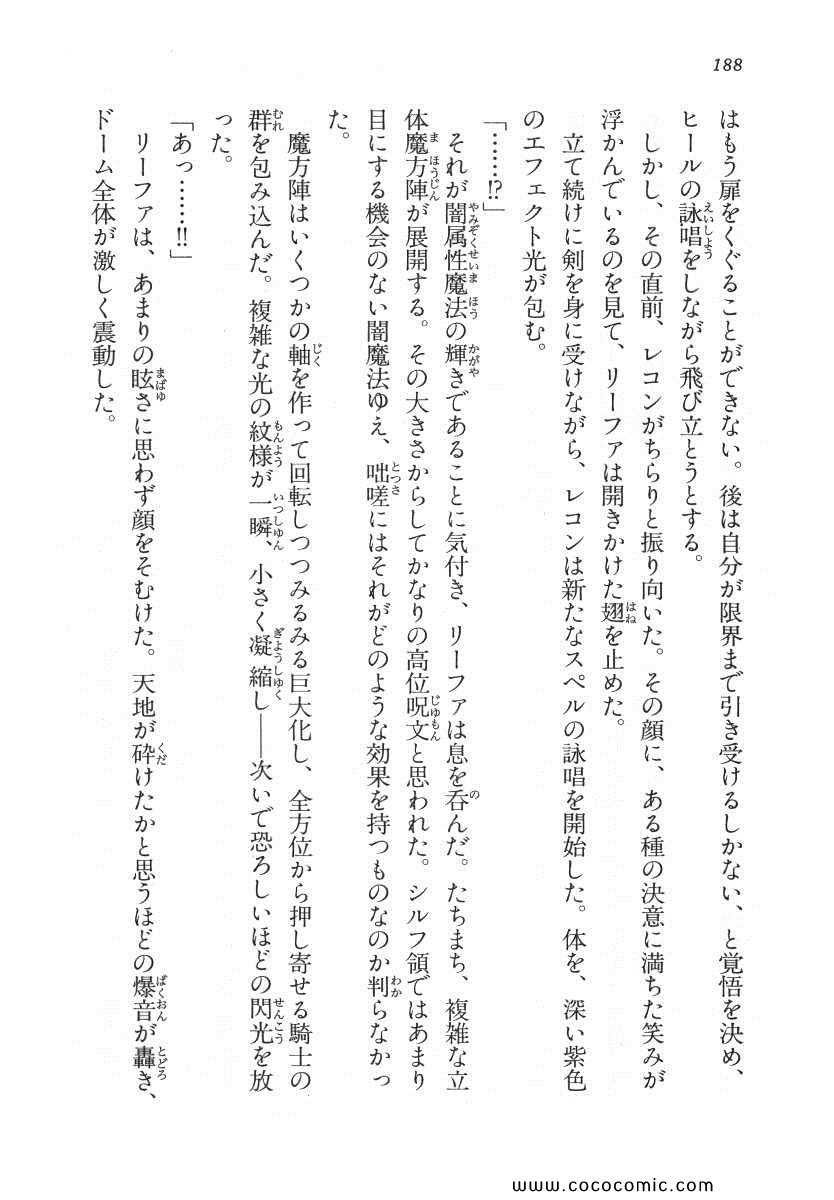 188
はもう扉をくぐることができない。後は自分が限界まで引き受けるしかない、と覚悟を決め、
ヒールの詠唱をしながら飛び立とうとする。
しかし、その直前、レコンがちらりと振り向いた。その顔に、ある種の決意に満ちた笑みが
浮かんでいるのを見て、リーファは開きかけた翅を止めた。
立て続けに剣を身に受けながら、レコンは新たなスペルの詠唱を開始した。体を、深い紫色
のエフェクト光が包む。
「……!?」
それが闇属性魔法の輝きであることに気付き、リーファは息を呑んだ。たちまち、複雑な立
体魔方陣が展開する。その大きさからしてかなりの高位呪文と思われた。シルフ領ではあまり
目にする機会のない闇魔法ゆえ、咄嗟にはそれがどのような効果を持つものなのか判らなかっ
た。
魔方陣はいくつかの軸を作って回転しつつみるみる巨大化し、全方位から押し寄せる騎士の
群を包み込んだ。複雑な光の紋様が一瞬、小さく凝縮し――次いで恐ろしいほどの閃光を放
った。
「あっ……!!」
リーファは、あまりの眩さに思わず顔をそむけた。天地が砕けたかと思うほどの爆音が轟き、
ドーム全体が激しく震動した。
www.cococomic.com